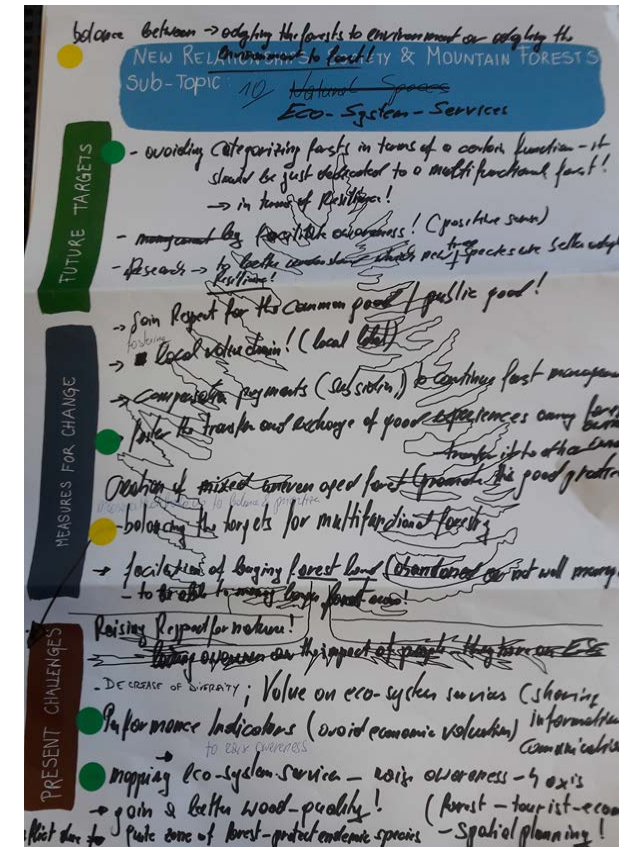 balance between → adapting the forests to environment or adapting the
environment to forest!
NEW RELATIONSHIPS SOCIETY & MOUNTAIN FORESTS
SUB-TOPIC: 10) Natural Spaces
Eco-System-Services
FUTURE TARGETS
- avoiding categorizing forests in terms of a certain function - it
should be just dedicated to a multifunctional forest!
→ in terms of Resilience!
- management by awareness! (positive sense)
- Research → to better understand which new tree species are
Resilience!
→ Gain Respect for the common good / public good!
fostering
→ local value chain! (local label)
MEASURES FOR CHANGE
→ compensation payments (subsidies) to continue forest
→ foster the transfer and exchange of good experiences among
transfer it to other
Creation of mixed uneven aged forest (promote this good
to balance
- balancing the targets for multifunctional forestry
→ facilitation of buying forest land (abandoned or not well
- to be able to larger forest area!
Raising Respect for nature!
- awareness on the impact of people they have on ESS
PRESENT CHALLENGES
- DECREASE OF DIVERSITY; Value on eco-system services (sharing
Performance Indicators (avoid economic valuation) information
to raise awareness
→ mapping eco-system-service - raise awareness - 4 axis
→ gain a better wood-quality! (forest - tourist -
due to zone of forest - protect endemic species - Spatial planning!